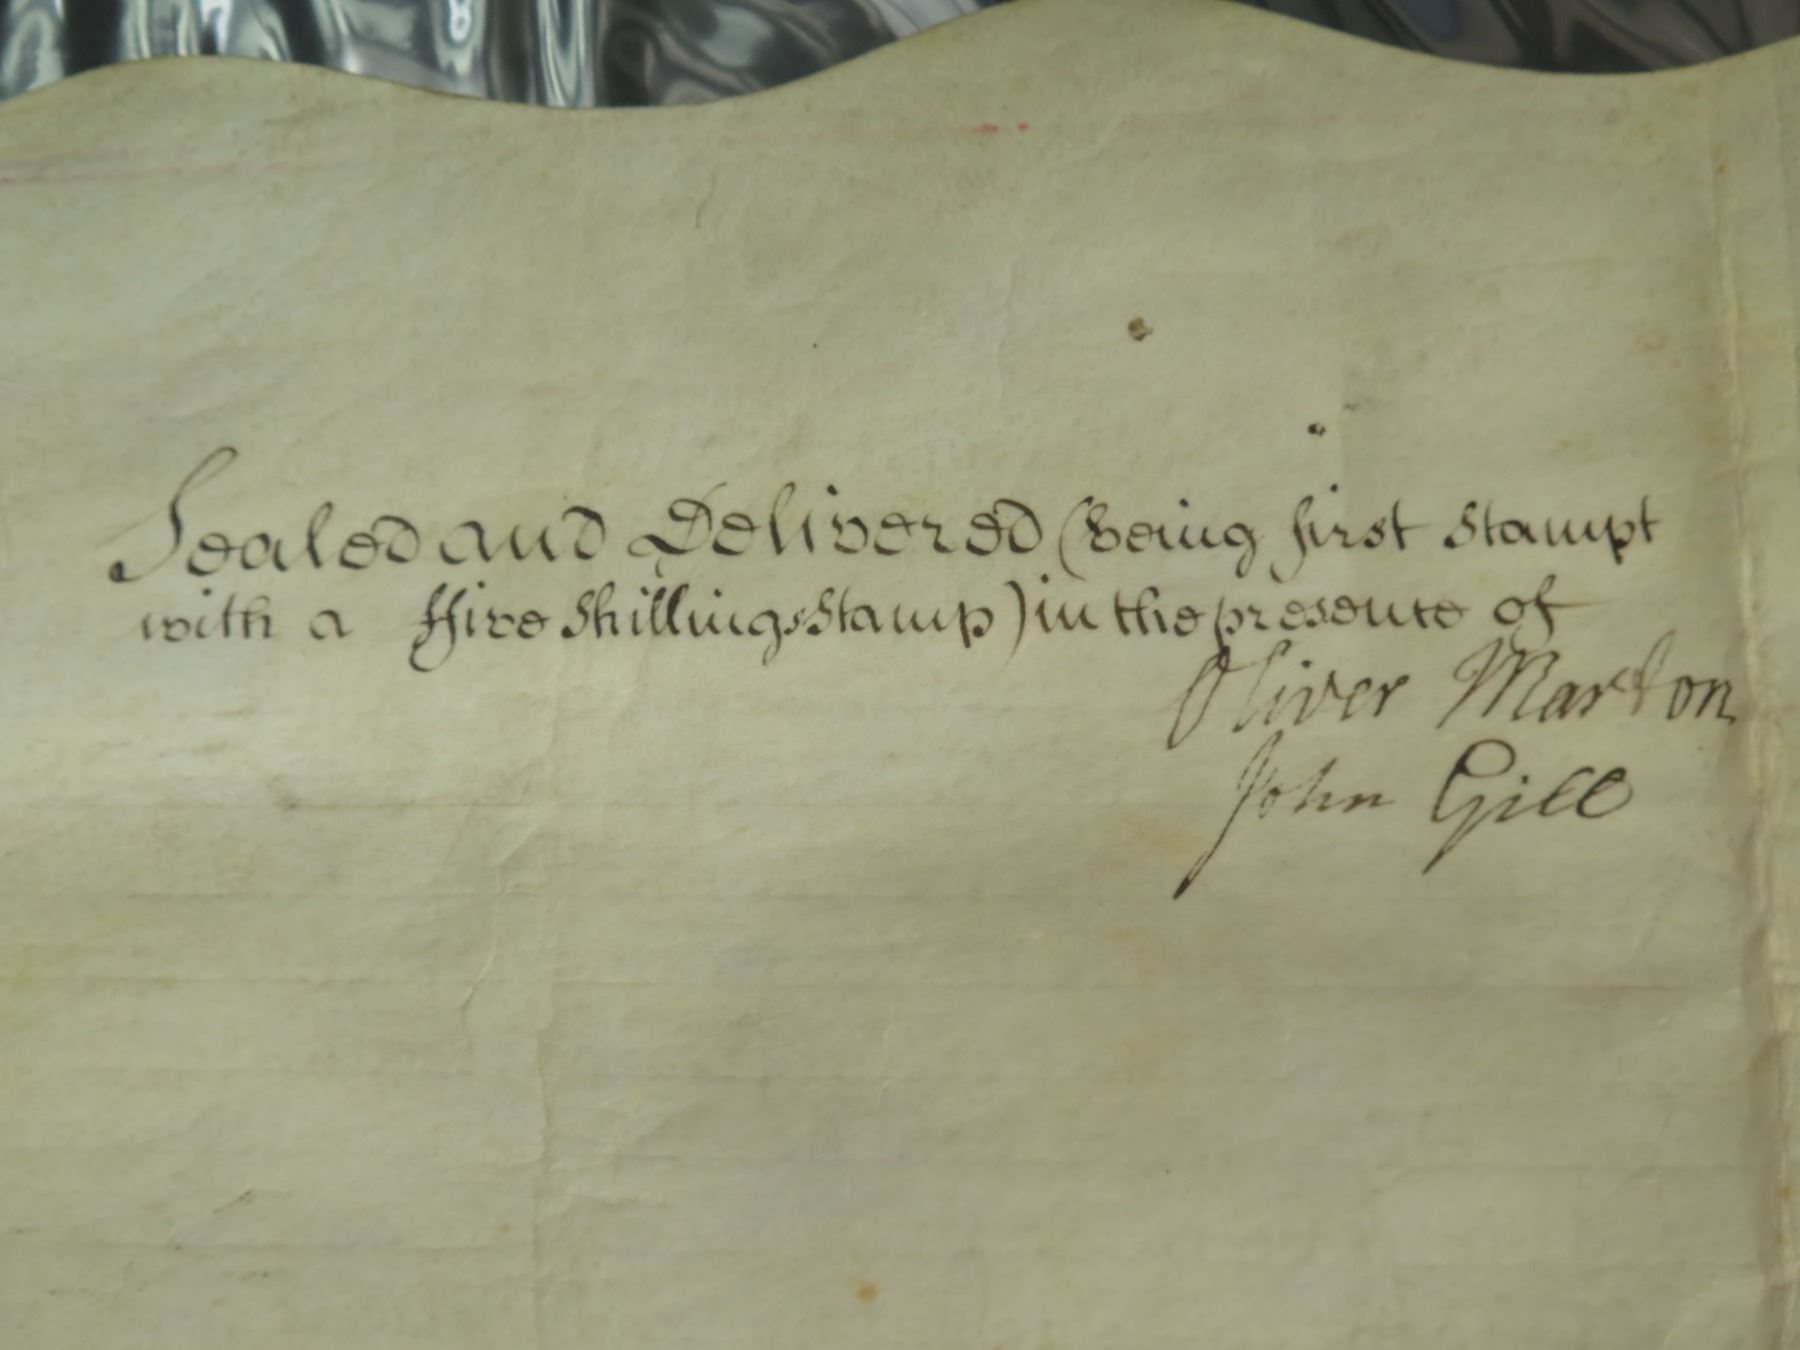 Sealed and Delivered (being first Stampt
with a ffive Shillings Stamp) in the presence of
Oliver Marton
John Gill